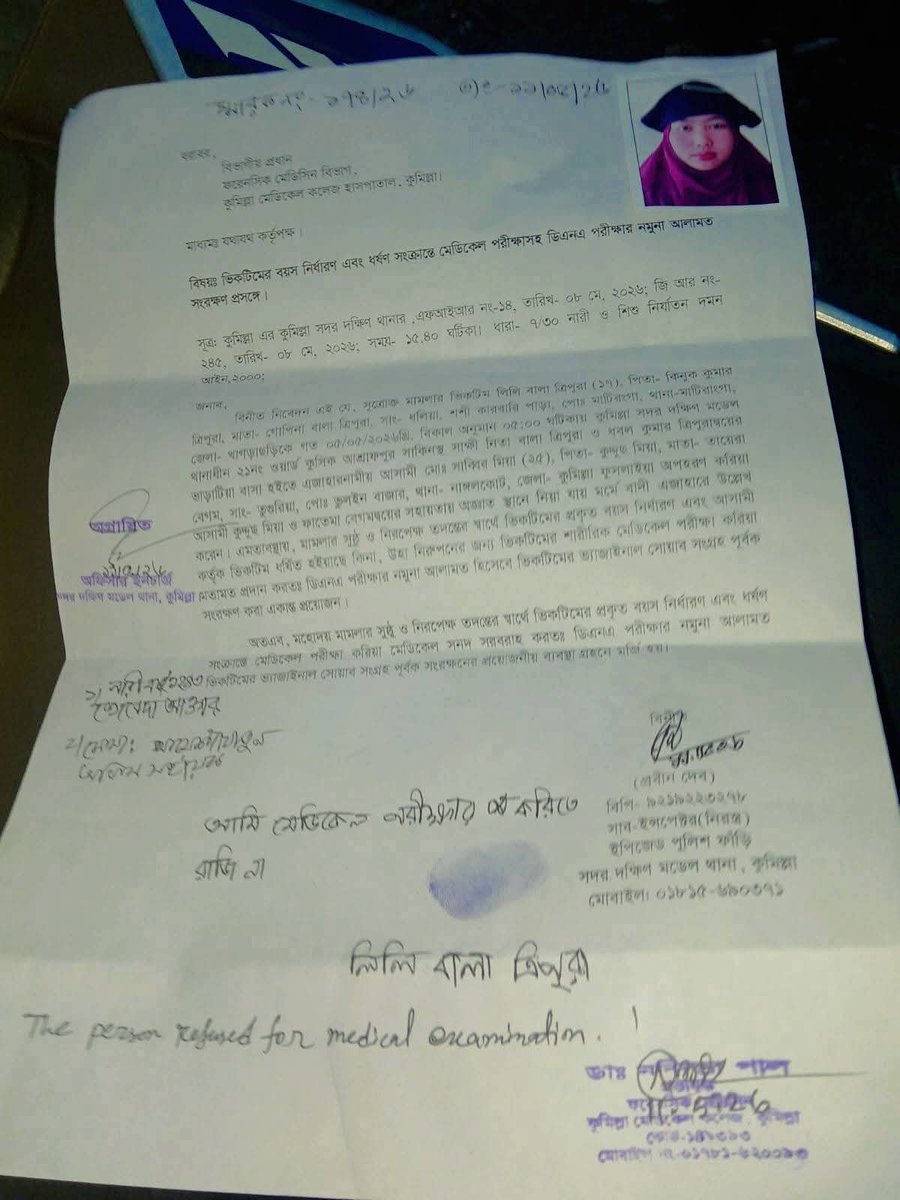 স্মারক নং- ১৭৪/২৬
বরাবর,
বিভাগীয় প্রধান
ফরেনসিক মেডিসিন বিভাগ,
কুমিল্লা মেডিকেল কলেজ হাসপাতাল, কুমিল্লা।
মাধ্যমঃ যথাযথ কর্তৃপক্ষ।
বিষয়ঃ ভিকটিমের বয়স নির্ধারণ এবং ধর্ষণ সংক্রান্তে মেডিকেল পরীক্ষাসহ ডিএনএ পরীক্ষার নমুনা আলামত
সংরক্ষণ প্রসঙ্গে।
সূত্রঃ কুমিল্লা এর কুমিল্লা সদর দক্ষিণ থানার ,এফআইআর নং-১৪, তারিখ- ০৮ মে, ২০২৬; জি আর নং-
২৪৫, তারিখ- ০৮ মে, ২০২৬; সময়- ১৫.৪০ ঘটিকা। ধারা- ৭/৩০ নারী ও শিশু নির্যাতন দমন
আইন,২০০০;
জনাব,
বিনীত নিবেদন এই যে, সূত্রোক্ত মামলার ভিকটিম লিলি বালা ত্রিপুরা (১৭), পিতা- কিনুক কুমার
ত্রিপুরা, মাতা- গোপিনা বালা ত্রিপুরা, সাং- দলিয়া, শশী কারবারি পাড়া, পোঃ মাটিরাংগা, থানা-মাটিরাংগা,
জেলা- খাগড়াছড়িকে গত ০৫/০৫/২০২৬খ্রি, বিকাল অনুমান ০৫:০০ ঘটিকায় কুমিল্লা সদর দক্ষিণ মডেল
থানাধীন ২১নং ওয়ার্ড কুসিক আশ্রাফপুর সাকিনস্থ সাক্ষী নিতা বালা ত্রিপুরা ও ধবল কুমার ত্রিপুরাদ্বয়ের
ভাড়াটিয়া বাসা হইতে এজাহারনামীয় আসামী মোঃ সাব্বির মিয়া (২৫), পিতা- কুদ্দুছ মিয়া, মাতা- তায়েরা
বেগম, সাং- তুগুরিয়া, পোঃ তুলইন বাজার, থানা- নাঙ্গলকোট, জেলা- কুমিল্লা ফুসলাইয়া অপহরণ করিয়া
আসামী কুদ্দুছ মিয়া ও ফাতেমা বেগমদ্বয়ের সহায়তায় অজ্ঞাত স্থানে নিয়া যায় মর্মে বাদী এজাহারে উল্লেখ
করেন। এমতাবস্থায়, মামলার সুষ্ঠু ও নিরপেক্ষ তদন্তের স্বার্থে ভিকটিমের প্রকৃত বয়স নির্ধারণ এবং আসামী
কর্তৃক ভিকটিম ধর্ষিত হইয়াছে কিনা, উহা নিরুপনের জন্য ভিকটিমের শারীরিক মেডিকেল পরীক্ষা করিয়া
মতামত প্রদান করতঃ ডিএনএ পরীক্ষার নমুনা আলামত হিসেবে ভিকটিমের ভ্যাজাইনাল সোয়াব সংগ্রহ পূর্বক
সংরক্ষণ করা একান্ত প্রয়োজন।
অগ্রায়িত
অফিসার ইনচার্জ
সদর দক্ষিণ মডেল থানা, কুমিল্লা
অতএব, মহোদয় মামলার সুষ্ঠু ও নিরপেক্ষ তদন্তের স্বার্থে ভিকটিমের প্রকৃত বয়স নির্ধারণ এবং ধর্ষণ
সংক্রান্তে মেডিকেল পরীক্ষা করিয়া মেডিকেল সনদ সরবরাহ করতঃ ডিএনএ পরীক্ষার নমুনা আলামত
ভিকটিমের ভ্যাজাইনাল সোয়াব সংগ্রহ পূর্বক সংরক্ষনের প্রয়োজনীয় ব্যবস্থা গ্রহনে মর্জি হয়।
১)
২)
অফিস সহায়ক
(প্রধীন দেব)
বিপি- ৯২১৯২২৩২৭৮
সাব-ইন্সপেক্টর(নিরস্ত্র)
ইপিজেড পুলিশ ফাঁড়ি
সদর দক্ষিণ মডেল থানা, কুমিল্লা
মোবাইল: ০১৮১৫-৬৯০৩৭১
আমি মেডিকেল পরীক্ষার করিতে
রাজি না
লিলি বালা ত্রিপুরা
The person refused for medical examination.
ডাঃ পাল
কুমিল্লা মেডিকেল কলেজ, কুমিল্লা